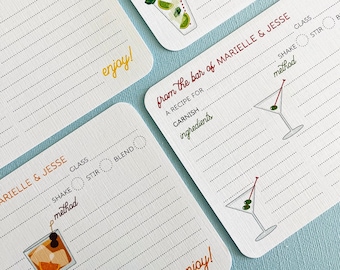 enjoy!
from the bar of MARIELLE & JESSE
A RECIPE FOR
GLASS
SHAKE STIR B
GARNISH
ingredients
method
ARIELLE & JESSE
GLASS
SHAKE STIR BLEND
method
enjoy!